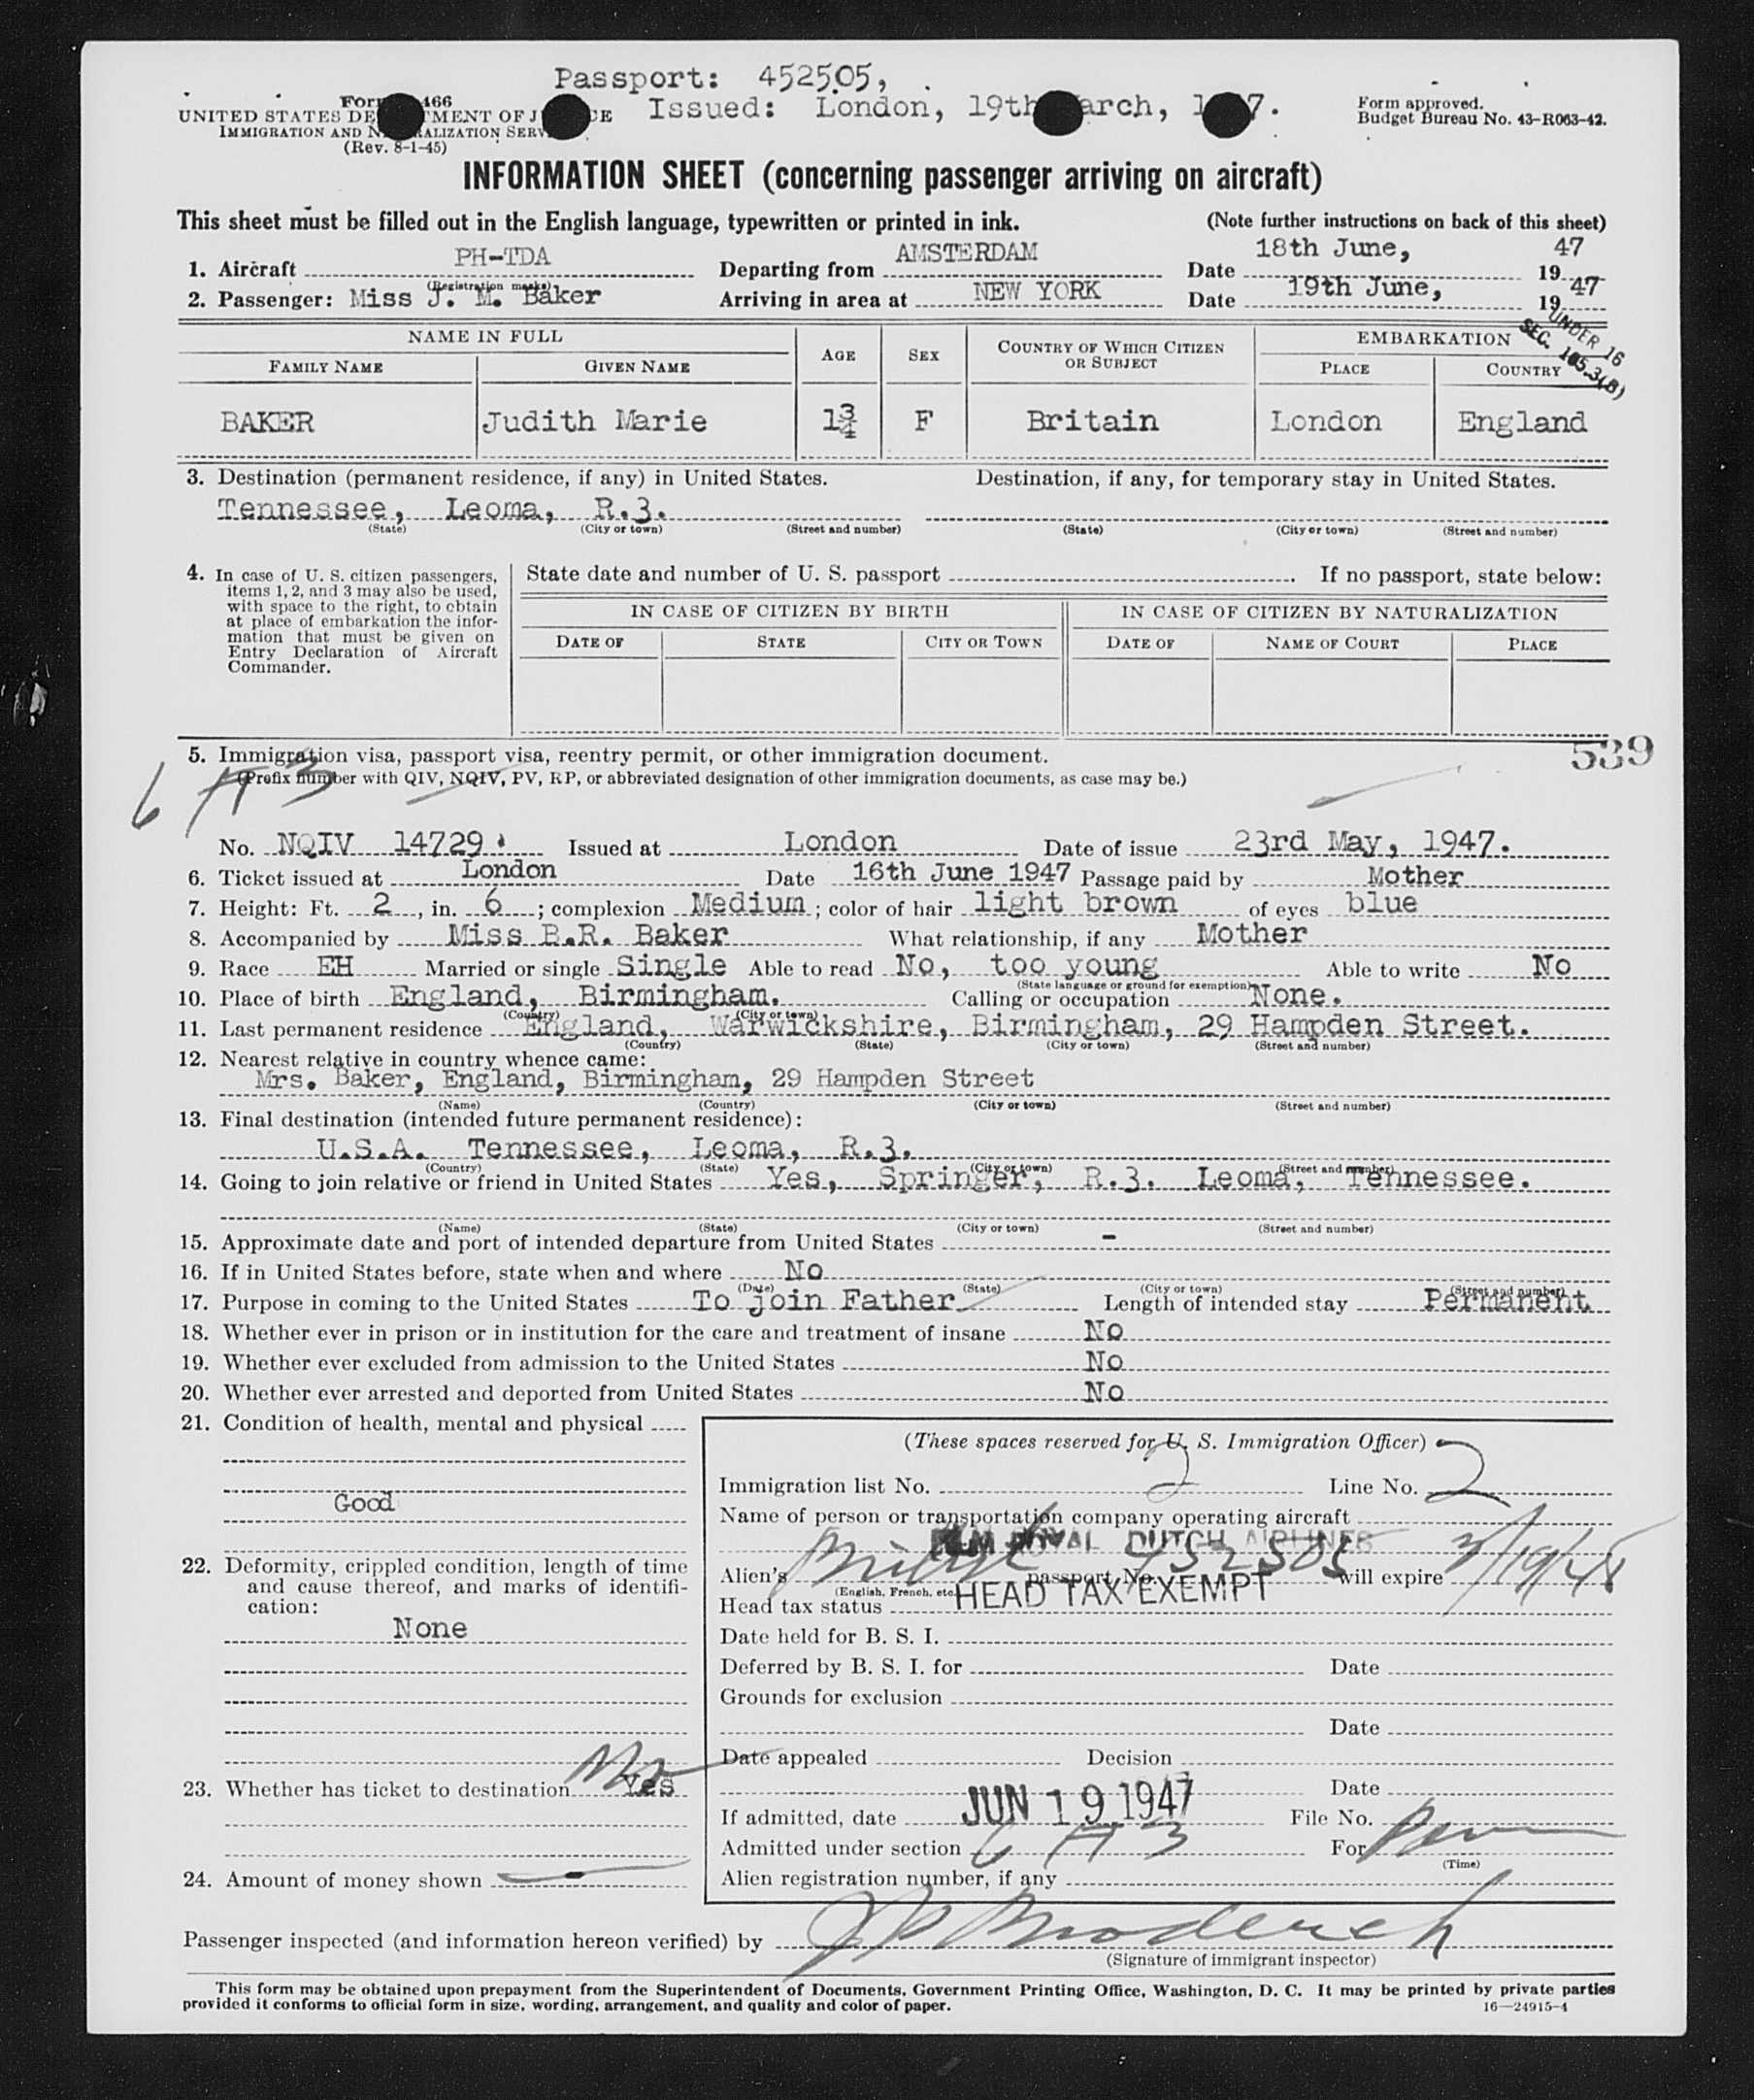 Passport: 452505,
Issued: London, 19th March, 1947.
UNITED STATES DEPARTMENT OF JUSTICE
IMMIGRATION AND NATURALIZATION SERVICE
(Rev. 8-1-45)
Form approved.
Budget Bureau No. 43-R063-42.
INFORMATION SHEET (concerning passenger arriving on aircraft)
This sheet must be filled out in the English language, typewritten or printed in ink. (Note further instructions on back of this sheet)
1. Aircraft PH-TDA Departing from AMSTERDAM Date 18th June, 1947
(Registration marks)
2. Passenger: Miss J. M. Baker Arriving in area at NEW YORK Date 19th June, 1947
UNDER 16
SEC. 105.3(B)
NAME IN FULL AGE SEX COUNTRY OF WHICH CITIZEN OR SUBJECT EMBARKATION
FAMILY NAME GIVEN NAME PLACE COUNTRY
BAKER Judith Marie 1¾ F Britain London England
3. Destination (permanent residence, if any) in United States. Destination, if any, for temporary stay in United States.
Tennessee, Leoma, R.3.
(State) (City or town) (Street and number) (State) (City or town) (Street and number)
4. In case of U. S. citizen passengers, items 1, 2, and 3 may also be used, with space to the right, to obtain at place of embarkation the information that must be given on Entry Declaration of Aircraft Commander.
State date and number of U. S. passport . If no passport, state below:
IN CASE OF CITIZEN BY BIRTH IN CASE OF CITIZEN BY NATURALIZATION
DATE OF STATE CITY OR TOWN DATE OF NAME OF COURT PLACE
539
5. Immigration visa, passport visa, reentry permit, or other immigration document.
(Prefix number with QIV, NQIV, PV, RP, or abbreviated designation of other immigration documents, as case may be.)
6 A 3
No. NQIV 14729 Issued at London Date of issue 23rd May, 1947.
6. Ticket issued at London Date 16th June 1947 Passage paid by Mother
7. Height: Ft. 2, in. 6; complexion Medium; color of hair light brown of eyes blue
8. Accompanied by Miss B.R. Baker What relationship, if any Mother
9. Race EH Married or single Single Able to read No, too young Able to write No
(State language or ground for exemption)
10. Place of birth England, Birmingham. Calling or occupation None.
(Country) (City or town)
11. Last permanent residence England, Warwickshire, Birmingham, 29 Hampden Street.
(Country) (State) (City or town) (Street and number)
12. Nearest relative in country whence came:
Mrs. Baker, England, Birmingham, 29 Hampden Street
(Name) (Country) (City or town) (Street and number)
13. Final destination (intended future permanent residence):
U.S.A. Tennessee, Leoma, R.3.
(Country) (State) (City or town) (Street and number)
14. Going to join relative or friend in United States Yes, Springer, R.3. Leoma, Tennessee.
(Name) (State) (City or town) (Street and number)
15. Approximate date and port of intended departure from United States -
16. If in United States before, state when and where No
(Date) (State) (City or town) (Street and number)
17. Purpose in coming to the United States To join Father Length of intended stay Permanent
18. Whether ever in prison or in institution for the care and treatment of insane No
19. Whether ever excluded from admission to the United States No
20. Whether ever arrested and deported from United States No
21. Condition of health, mental and physical
Good
22. Deformity, crippled condition, length of time and cause thereof, and marks of identification:
None
23. Whether has ticket to destination Yes No
24. Amount of money shown -
(These spaces reserved for U. S. Immigration Officer)
Immigration list No. 2 Line No. 2
Name of person or transportation company operating aircraft
KLM ROYAL DUTCH AIRLINES
Alien's British passport No. 452505 will expire 3/19/48
(English, French, etc.)
Head tax status HEAD TAX EXEMPT
Date held for B. S. I.
Deferred by B. S. I. for Date
Grounds for exclusion
Date
Date appealed Decision
Date
If admitted, date JUN 19 1947 File No.
Admitted under section 6 A 3 For Perm
(Time)
Alien registration number, if any
Passenger inspected (and information hereon verified) by
(Signature of immigrant inspector)
This form may be obtained upon prepayment from the Superintendent of Documents, Government Printing Office, Washington, D. C. It may be printed by private parties
provided it conforms to official form in size, wording, arrangement, and quality and color of paper. 16—24915-4